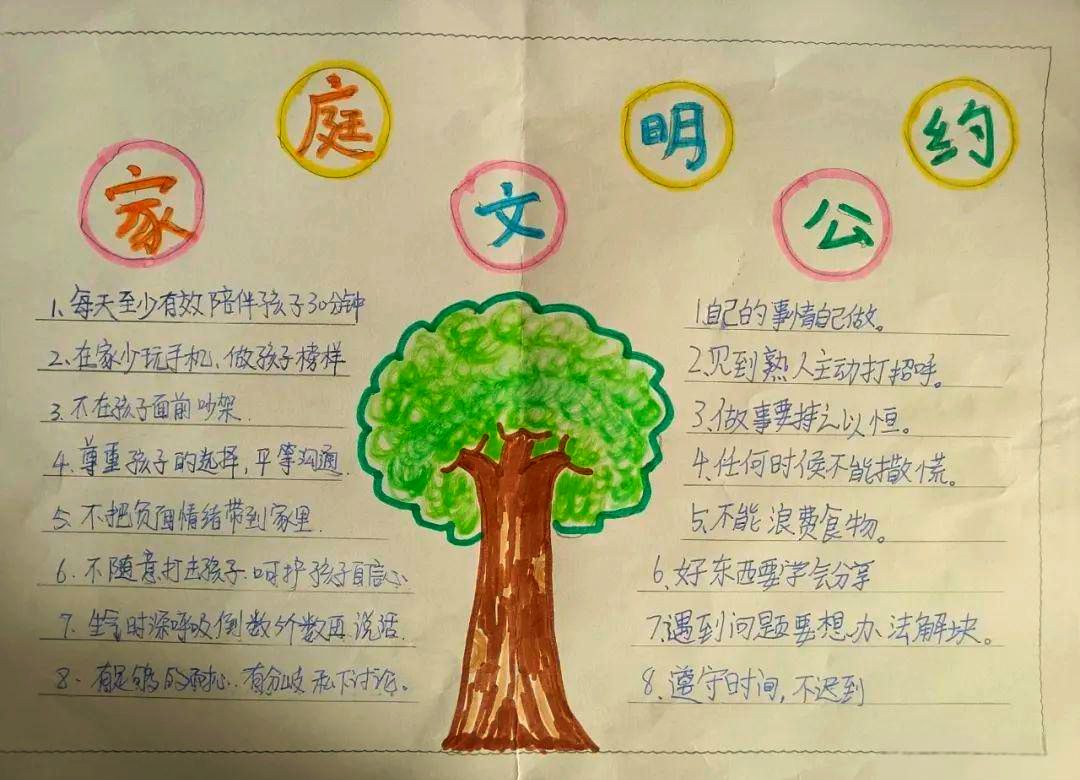 家庭文明公约
1、每天至少有效陪伴孩子30分钟
2、在家少玩手机、做孩子榜样
3、不在孩子面前吵架.
4、尊重孩子的选择,平等沟通.
5、不把负面情绪带到家里.
6、不随意打击孩子.呵护孩子自信心
7、生气时深呼吸倒数5个数再说话.
8、有足够的耐心.有分歧私下讨论。
1、自己的事情自己做。
2、见到熟人主动打招呼。
3、做事要持之以恒。
4、任何时候不能撒慌。
5、不能浪费食物。
6、好东西要学会分享
7、遇到问题要想办法解块。
8、遵守时间,不迟到